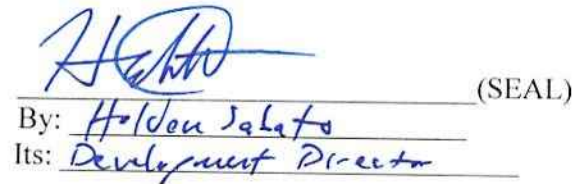 (SEAL)
By: Holden Sabato
Its: Development Director